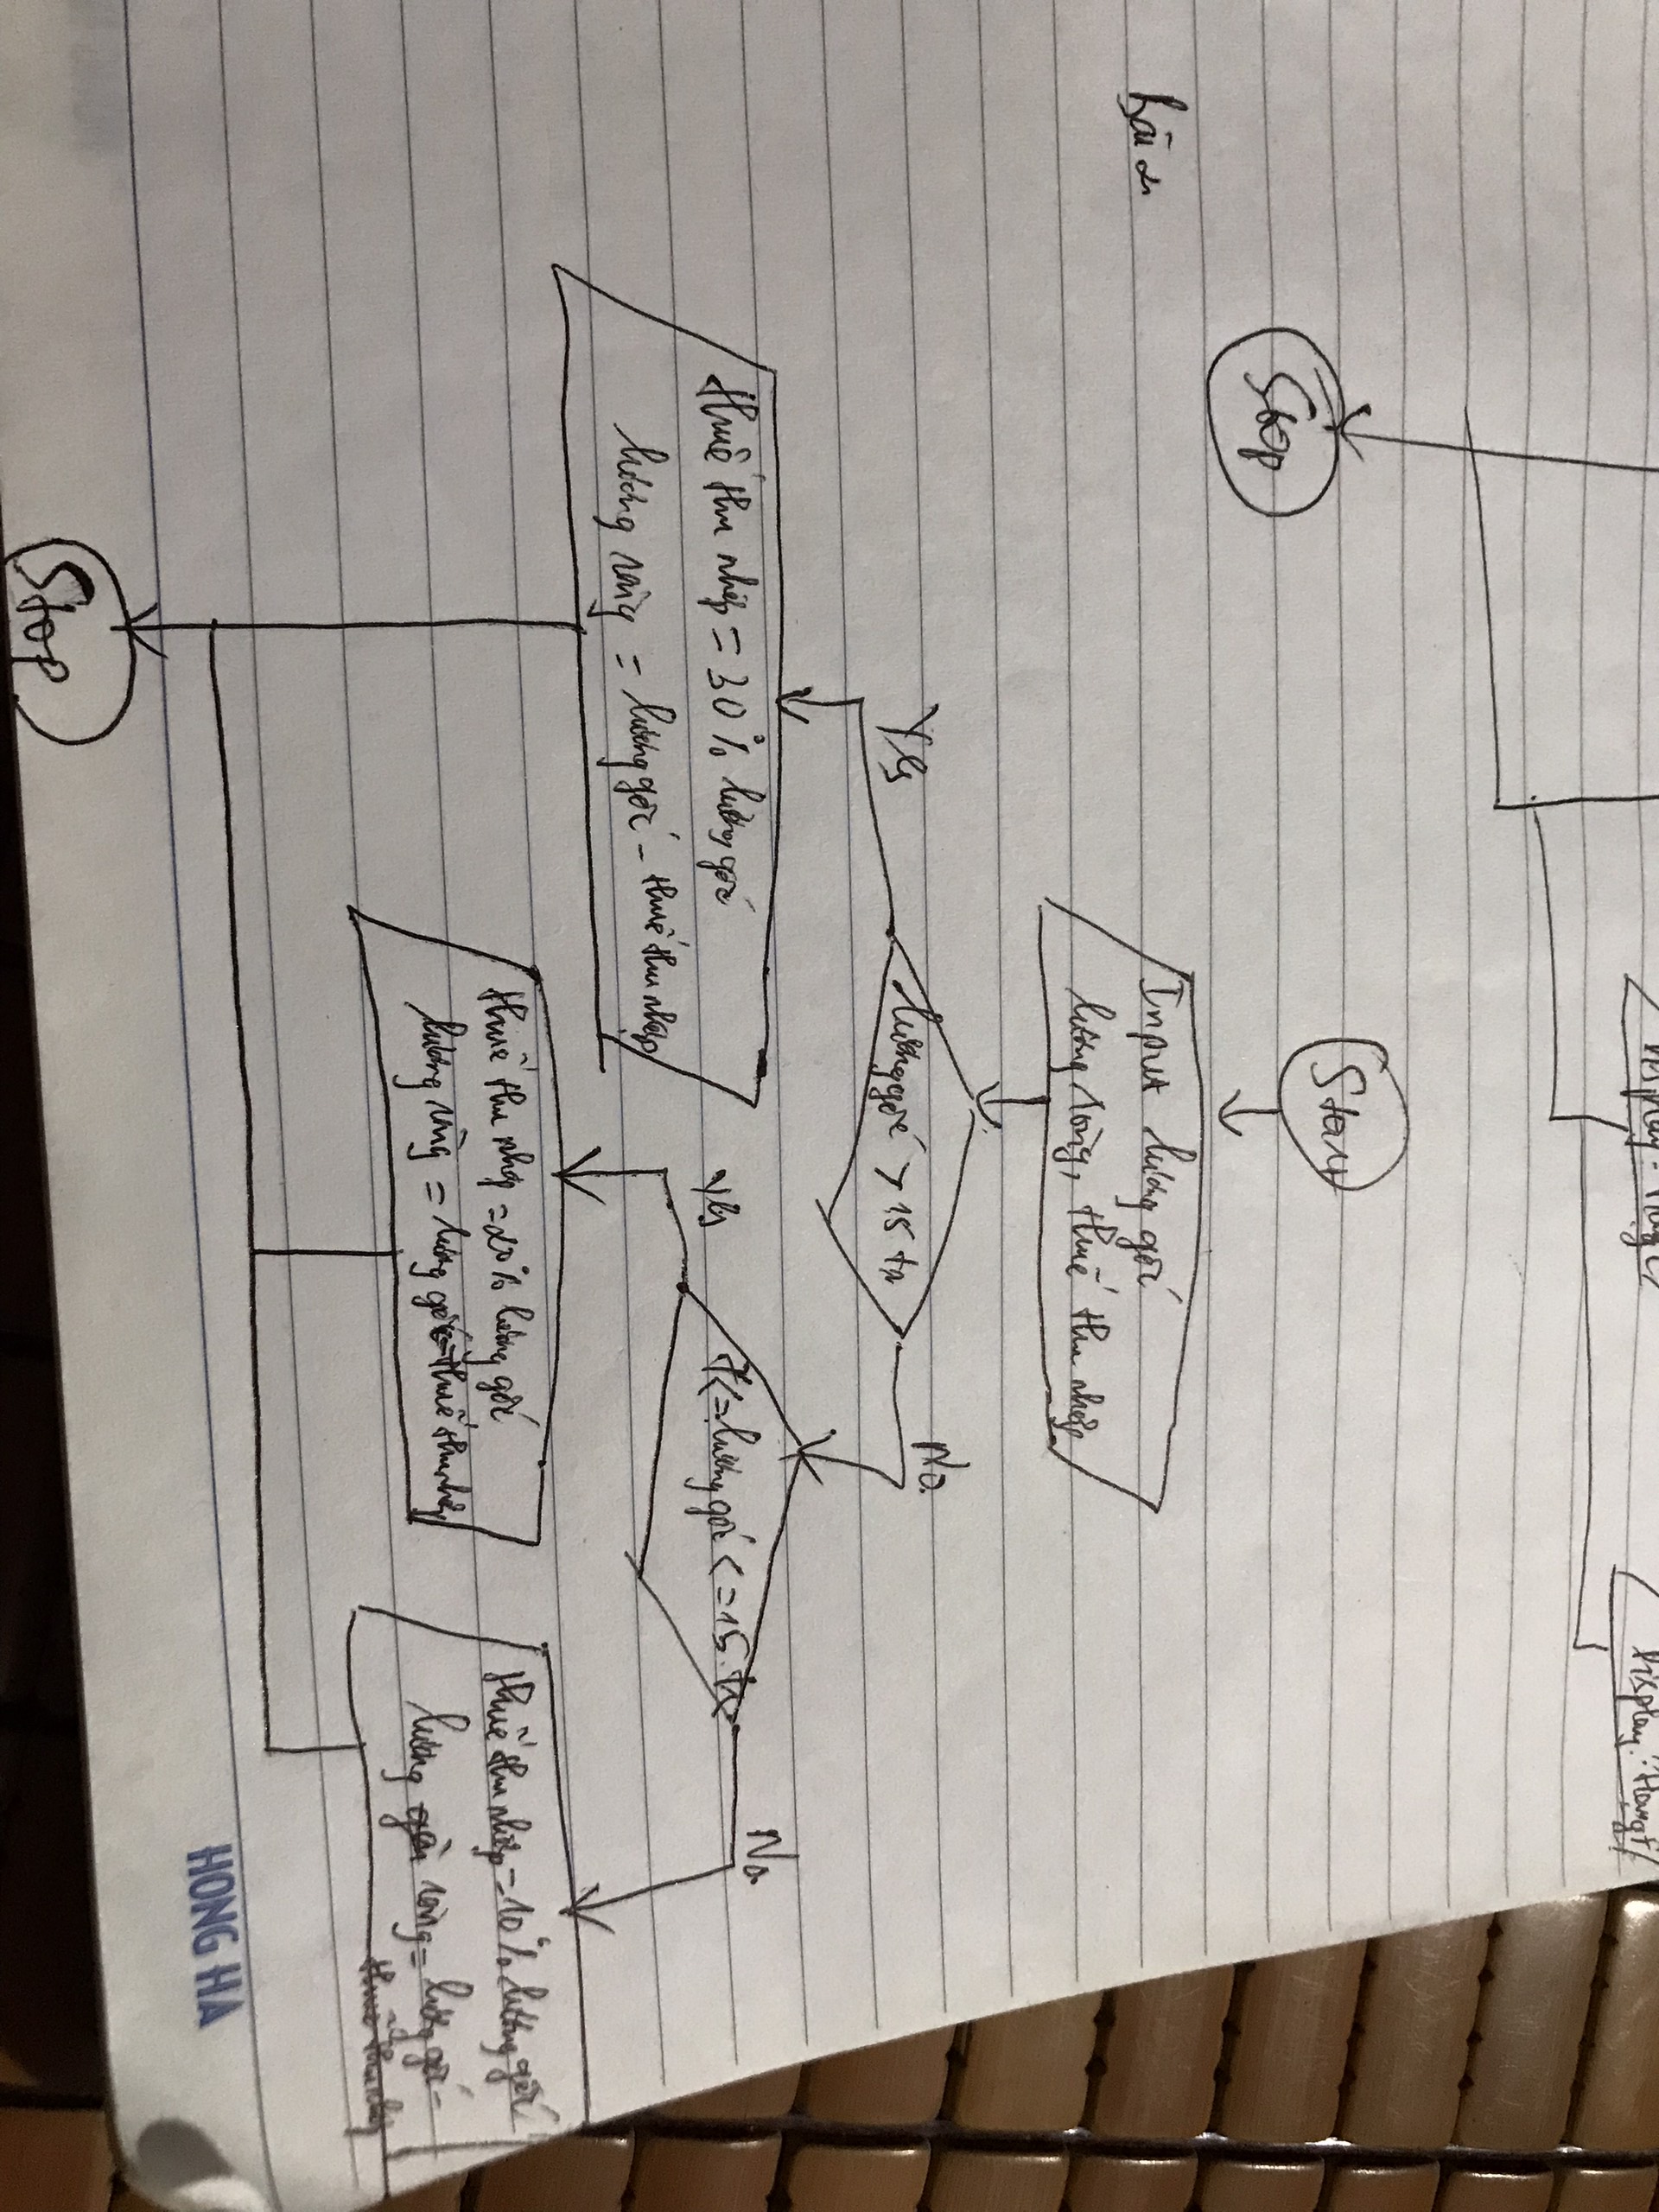 Display: "Hạng
Display: "Hạng F"
Stop
Bài 2
Start
Input lương gốc
lương ròng, thuế thu nhập
lương gốc > 15 tr
Yes
No.
Thuế thu nhập = 30% lương gốc
lương ròng = lương gốc - thuế thu nhập
7<=lương gốc <=15 tr
Yes
No.
Thuế thu nhập = 20% lương gốc
lương ròng = lương gốc - thuế thu nhập
Thuế thu nhập = 10% lương gốc
lương ròng = lương gốc -
thuế thu nhập
Stop
HONG HA